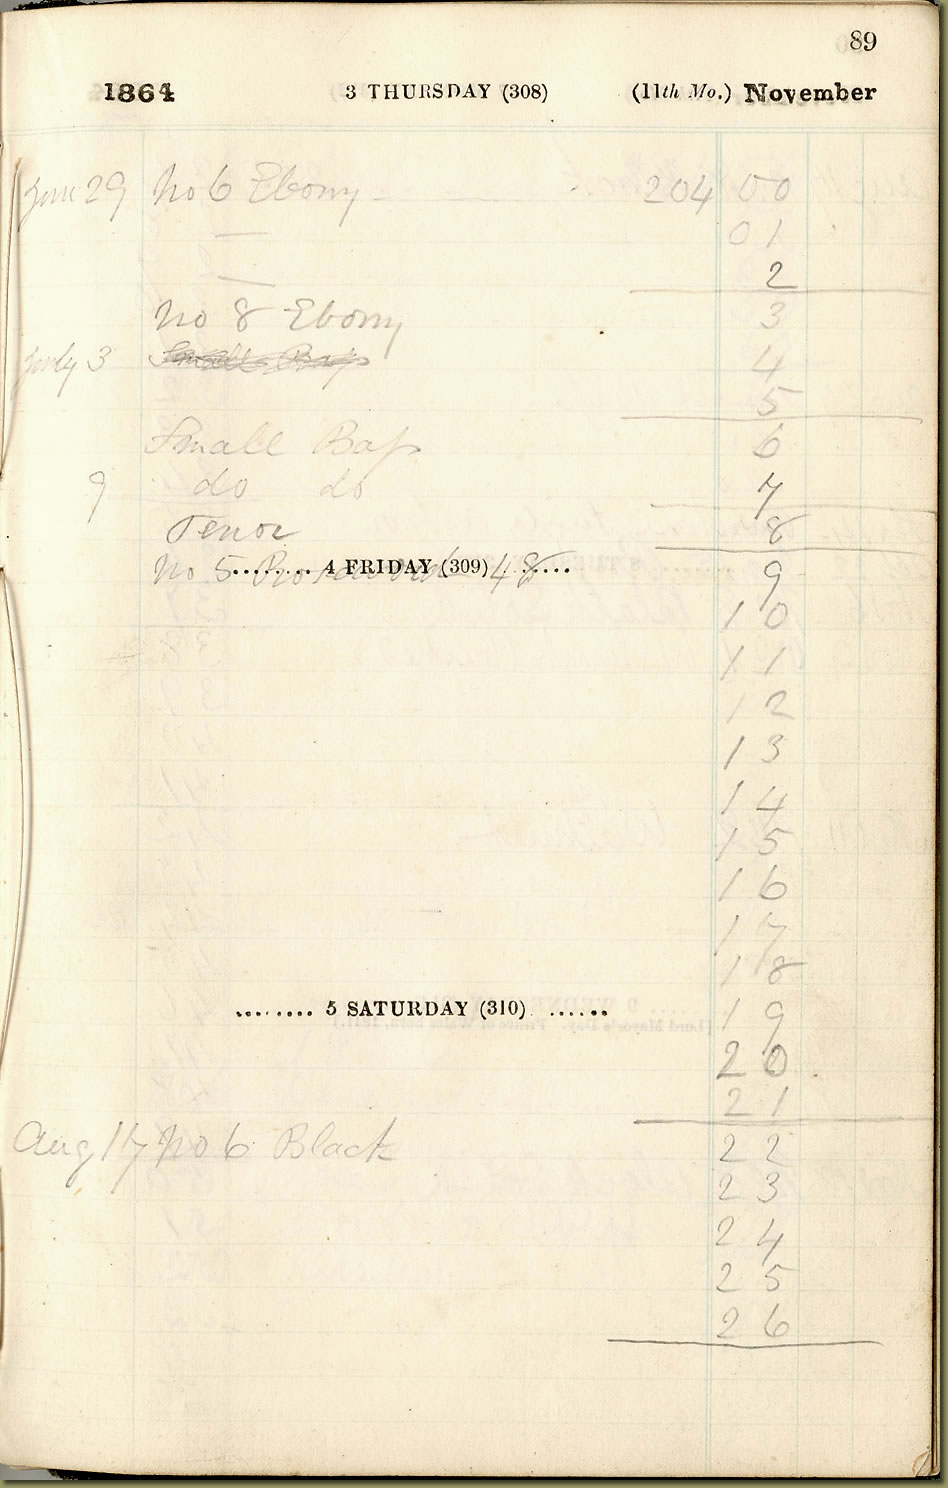 89
1864 3 THURSDAY (308) (11th Mo.) November
June 29 No 6 Ebony 204 00
01
2
No 8 Ebony 3
July 3 Small Bap 4
5
Small Bap 6
9 do do 7
Tenor 8
No 5 Rosewood 48 9
4 FRIDAY (309)
10
11
12
13
14
15
16
17
18
5 SATURDAY (310) 19
20
21
Aug 17 No 6 Black 22
23
24
25
26